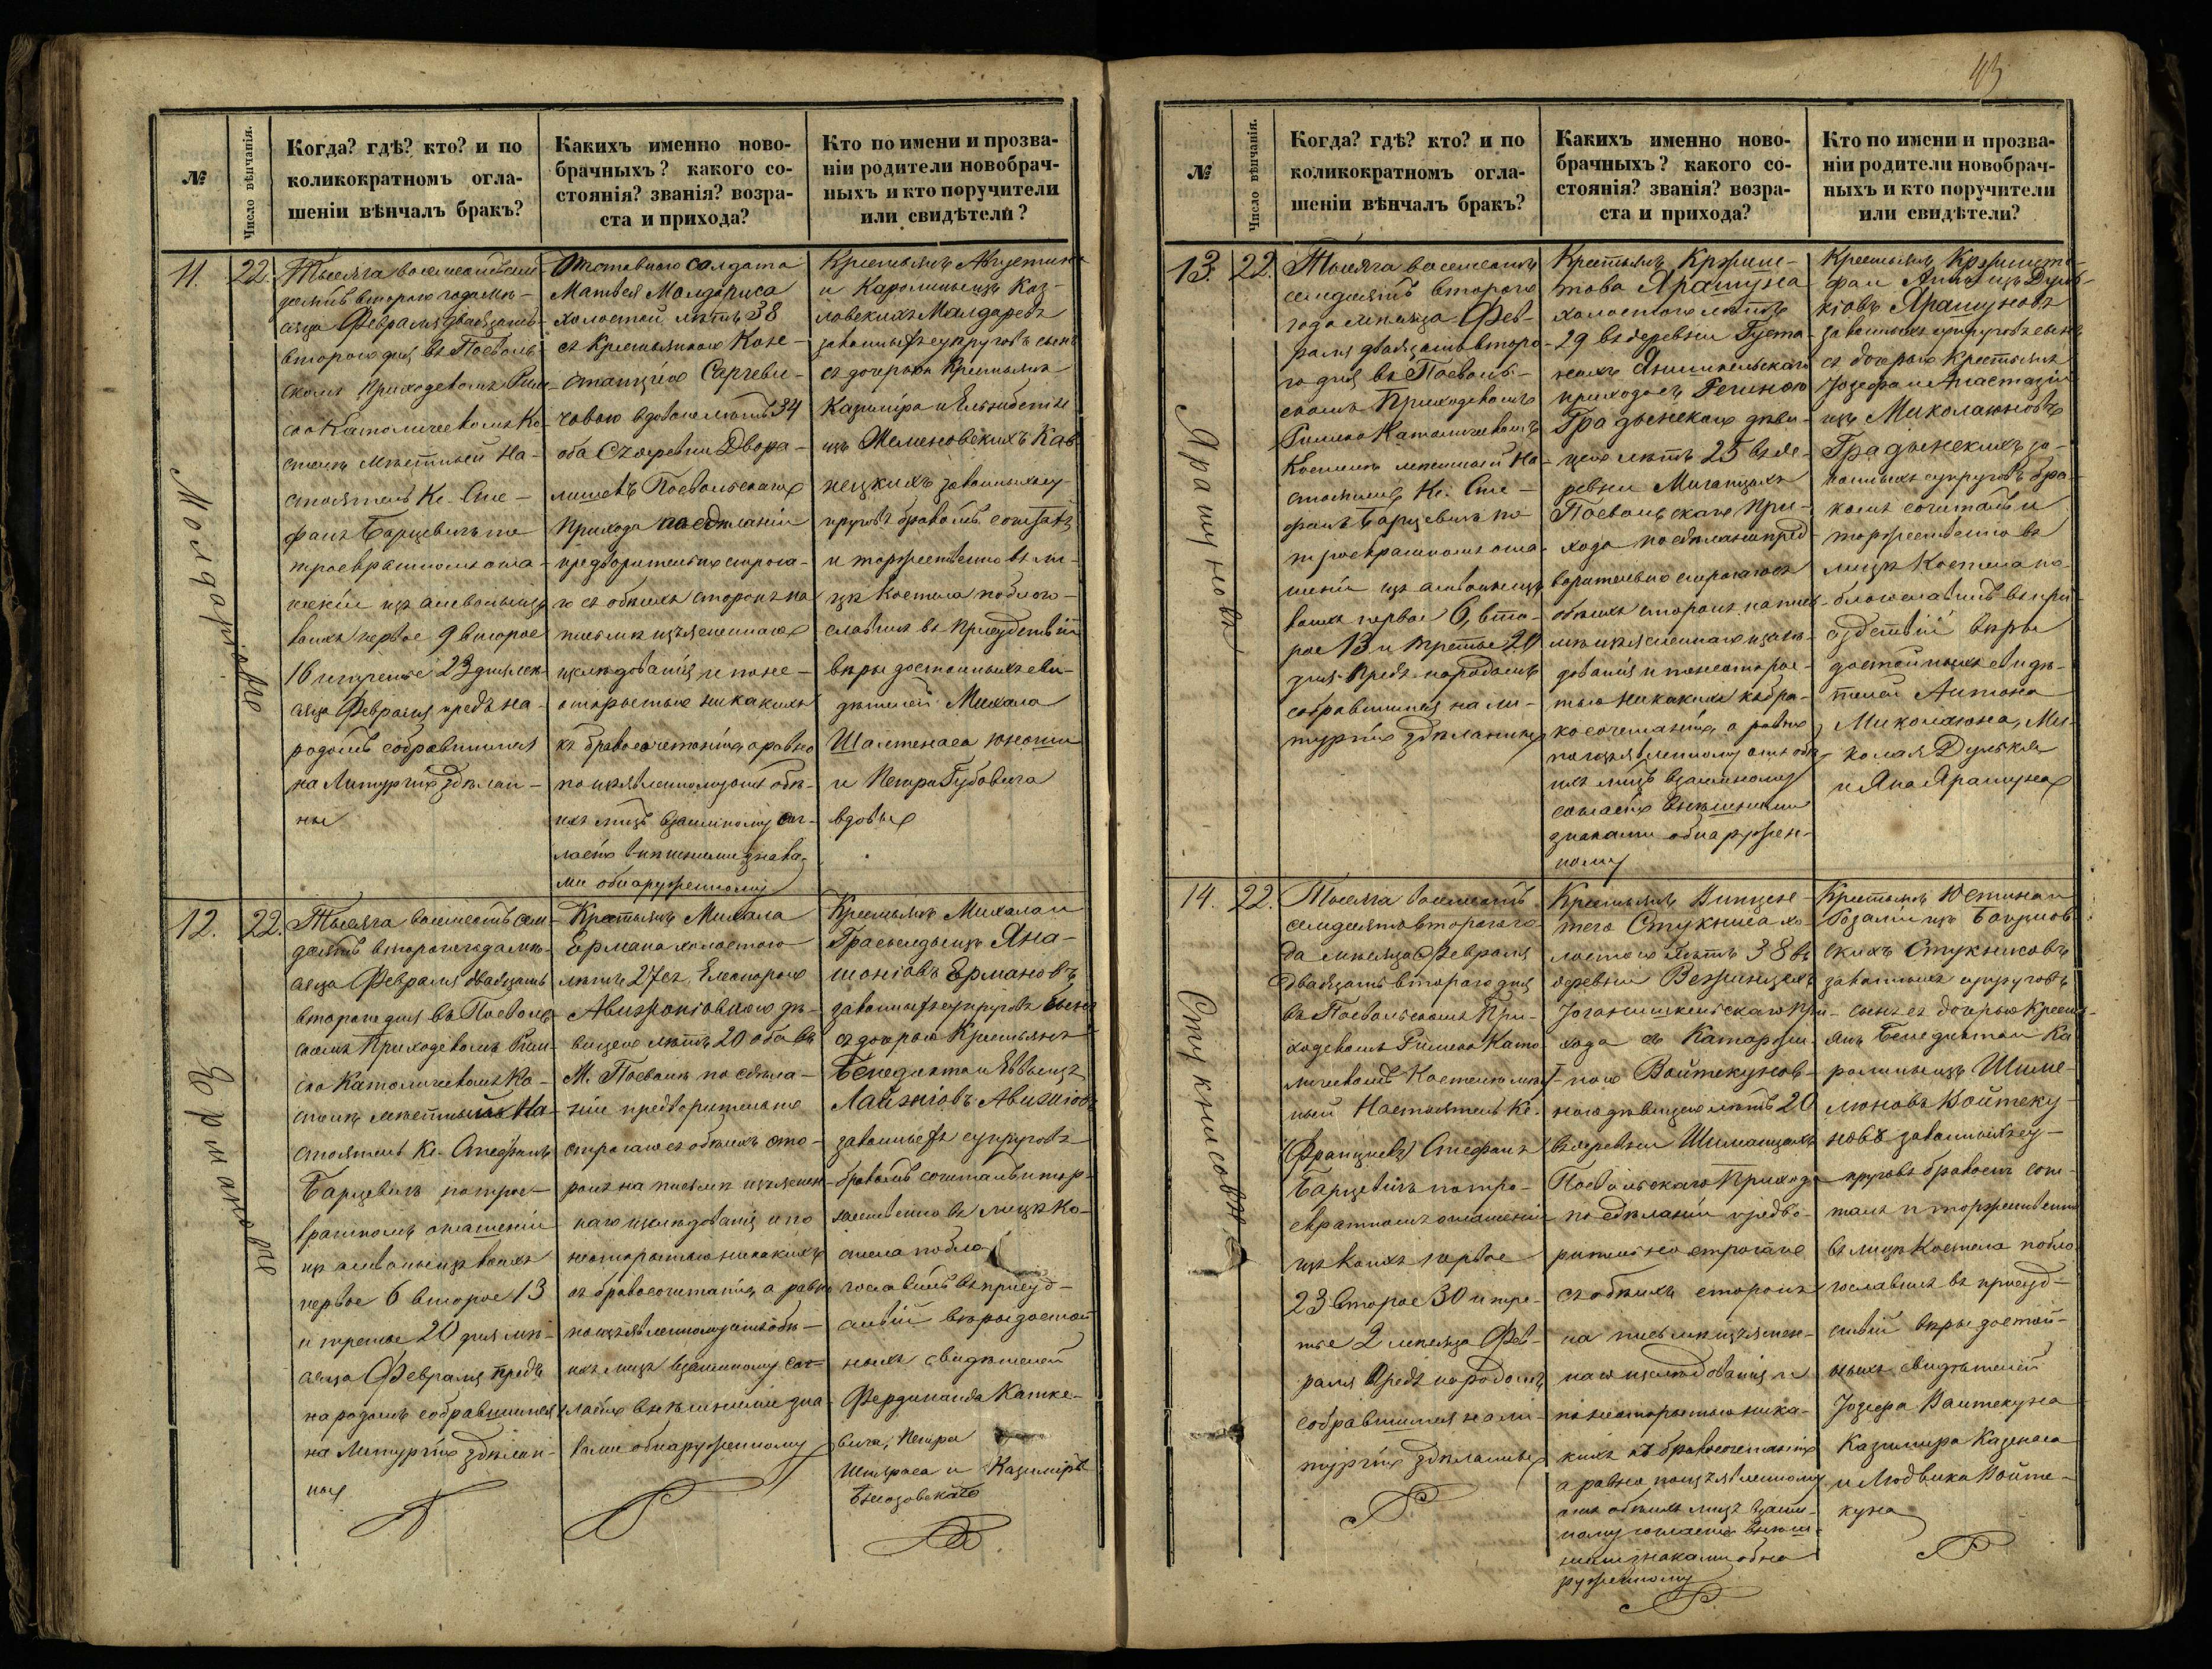 43
№
Число вѣнчанія.
Когда? гдѣ? кто? и по
коликократномъ огла-
шеніи вѣнчалъ бракъ?
Какихъ именно ново-
брачныхъ? какого со-
стоянія? званія? возра-
ста и прихода?
Кто по имени и прозва-
ніи родители новобрач-
ныхъ и кто поручители
или свидѣтели?
11.
22.
Молдарісве
Тысяча восемсотъ сем-
десятъ второго года мѣ-
сяца Февраля двадцать
второго дня въ Поеволь-
скомъ Приходскомъ Рим-
ско Католическомъ Ко-
стелѣ мѣстный На-
стоятель Кс. Сте-
фанъ Барцевичъ по
троекратномъ огла-
шеніи изъ
коихъ первое 9 второе
16 и третіе 23 дня мѣ-
сяца Февраля предъ на-
родомъ собравшимся
на Литургію здѣлан-
ны
Отставного Солдата
Матвея Молдариса
холостой лѣтъ 38
съ Крестьянкою Кон-
станціею Саргеви-
човою вдовою лѣтъ 34
оба съ деревни Двора-
лишекъ Поевольскаго
Прихода по сдѣланіи
предворительно строга-
го съ обѣихъ сторонъ на
письмѣ изъясненнаго
изслѣдованія и по не-
открытію никакихъ
къ бракосочетанію, а равно
по изъявленному отъ обѣ-
ихъ лицъ взаимному сог-
ласію внѣшними знака-
ми обнаруженному
Крестьянъ Августина
и Каролины изъ Коз-
ловскихъ Малдаровъ
законныхъ супруговъ сынъ
съ дочерью Крестьянъ
Казиміра и Ельжбеты
изъ Жменовскихъ Кав-
нецкихъ законныхъ су-
пруговъ бракомъ сочеталъ
и торжественно въ ли-
цѣ Костела поблаго-
славилъ въ присудствіи
вѣры достойныхъ сви-
дѣтелей Михала
Шалтенаса юноши
и Петра Губовича
вдовы
12.
22.
Ермановые
Тысяча восемсотъ сем-
десятъ второго года мѣ-
сяца Февраля двадцать
второго дня въ Поеволь-
скомъ Приходскомъ Рим-
ско Католическомъ Ко-
стелѣ мѣстный На-
стоятель Кс. Стефанъ
Барцевичъ по трое-
кратномъ оглашеніи
изъ коихъ
первое 6 второе 13
и третіе 20 дня мѣ-
сяца Февраля предъ
народомъ собравшимся
на Литургію здѣлан-
ны
Крестьянъ Михала
Ермана холостого
лѣтъ 27 съ Елеонорою
Авижоніовною дѣ-
вицею лѣтъ 20 оба въ
М. Поеволь по сдѣла-
ніи предворительно
строгаго съ обѣихъ сто-
ронъ на письмѣ изъяснен-
наго изслѣдованія и по
неоткрытію никакихъ
къ бракосочетанію, а равно
по изъявленному отъ обѣ-
ихъ лицъ взаимному сог-
ласію внѣшними зна-
ками обнаруженному
Крестьянъ Михала и
Грасильды изъ Яна-
шоніовъ Ермановъ
законныхъ супруговъ сынъ
съ дочерью Крестьянъ
Бенедикта и Еввы изъ
Лайзніовъ Авижіовъ
законныхъ супруговъ
бракомъ сочеталъ и тор-
жественно въ лицѣ Ко-
стела побла-
гославилъ въ присуд-
ствіи вѣры достой
ныхъ свидѣтелей
Фердинанда Катке-
вича, Петра
и Казиміра
Бнозовскаго
№
Число вѣнчанія.
Когда? гдѣ? кто? и по
коликократномъ огла-
шеніи вѣнчалъ бракъ?
Какихъ именно ново-
брачныхъ? какого со-
стоянія? званія? возра-
ста и прихода?
Кто по имени и прозва-
ніи родители новобрач-
ныхъ и кто поручители
или свидѣтели?
13.
22.
Ярашуновы
Тысяча восемсотъ
семдесятъ второго
года мѣсяца Фев-
раля двадцать второ-
го дня въ Поеволь-
скомъ Приходскомъ
Римско Католическомъ
Костелѣ мѣстный На-
стоятель Кс. Сте-
фанъ Барцевичъ по
троекратномъ огла-
шеніи изъ
коихъ первое 6, вто-
рое 13 и третіе 20
дня предъ народомъ
собравшимся на Ли-
тургію здѣланны
Крестьянъ Кржиш-
това Ярашуна
холостого лѣтъ
29 въ деревни Густо-
няхъ Янишкельскаго
прихода съ Региною
Градынскою дѣви-
цею лѣтъ 25 въ де-
ревни Миганцахъ
Поевольскаго При-
хода по сдѣланіи пред-
ворительно строгаго съ
обѣихъ сторонъ на пись-
мѣ изъясненнаго изслѣ-
дованія и по неоткры-
тію никакихъ къ бра-
косочетанію, а равно
по изъявленному отъ обѣ-
ихъ лицъ взаимному
согласію внѣшними
знаками обнаружен-
ному
Крестьянъ Кржишто-
фа и Анны изъ Дуль-
кіовъ Ярашуновъ
законныхъ супруговъ сынъ
съ дочерью Крестьянъ
Іозефа и Анастазіи
изъ Миколаюновъ
Градынскихъ за-
конныхъ супруговъ бра-
комъ сочеталъ и
торжественно въ
лицѣ Костела по-
благославилъ въ при-
судствіи вѣры
достойныхъ свидѣ-
телей Антона
Миколаюна, Ми-
колая Дулькя
и Яна Ярашуна
14.
22.
Стукнисовы
Тысяча восемсотъ
семдесятъ второго го-
да мѣсяца Февраля
двадцать второго дня
въ Поевольскомъ При-
ходскомъ Римско Като
лическомъ Костелѣ мѣст-
ный Настоятель Кс.
Францискъ Стефанъ
Барцевичъ по тро-
екратномъ оглашеніи
изъ коихъ первое
23 второе 30 и тре-
тіе 2 мѣсяца Фев-
раля предъ народомъ
собравшимся на Ли-
тургію здѣланны
Крестьянъ Винцен-
тего Стукниса хо-
лостого лѣтъ 38 въ
деревни Вержинцахъ
Іоганишкельскаго При-
хода съ Катаржи-
ною Войтекунов-
ною дѣвицею лѣтъ 20
въ деревни Шиманцахъ
Поевольскаго Прихода
по сдѣланіи предво-
рительно строгаго
съ обѣихъ сторонъ
на письмѣ изъяснен-
наго изслѣдованія и
по неоткрытію ника-
кихъ къ бракосочетанію
а равно по изъявленному
отъ обѣихъ лицъ взаим-
ному согласію внѣш-
ними знаками обна
руженному
Крестьянъ Юстина и
Розаліи изъ
Стукнисовъ
законныхъ супруговъ
сынъ съ дочерью Кресть-
янъ Бенедикта и Ка
ролины изъ Шиме-
люновъ Войтеку-
новъ законныхъ су-
пруговъ бракомъ соче-
талъ и торжественно
въ лицѣ Костела побла-
гославилъ въ присуд-
ствіи вѣры достой-
ныхъ свидѣтелей
Іозефа Ваитекуна
Казимира Казенаса
и Людвика Войте-
куна